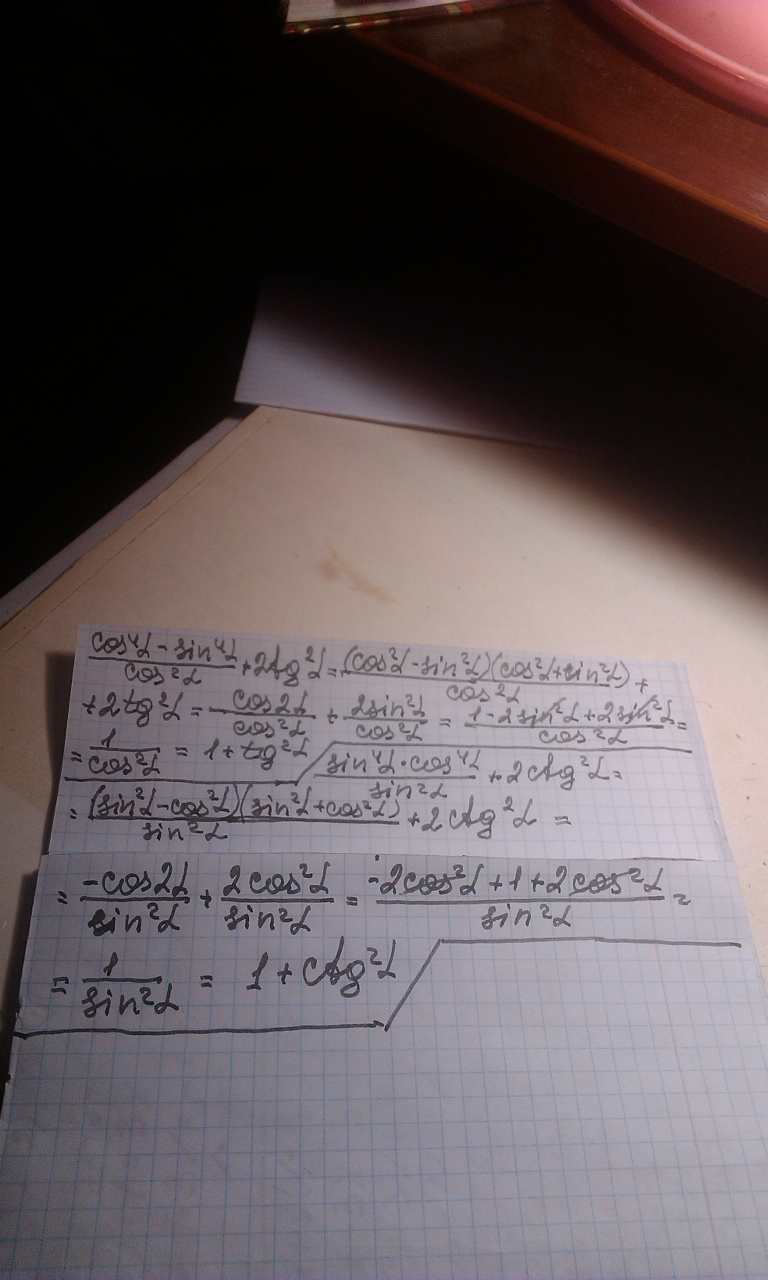 (cos⁴α - sin⁴α)/cos²α + 2tg²α = (cos²α - sin²α)(cos²α + sin²α)/cos²α +
+ 2tg²α = cos2α/cos²α + 2sin²α/cos²α = (1 - 2sin²α + 2sin²α)/cos²α =
= 1/cos²α = 1 + tg²α
(sin⁴α · cos⁴α)/sin²α + 2ctg²α =
= (sin²α - cos²α)(sin²α + cos²α)/sin²α + 2ctg²α =
= -cos2α/sin²α + 2cos²α/sin²α = (-2cos²α + 1 + 2cos²α)/sin²α =
= 1/sin²α = 1 + ctg²α